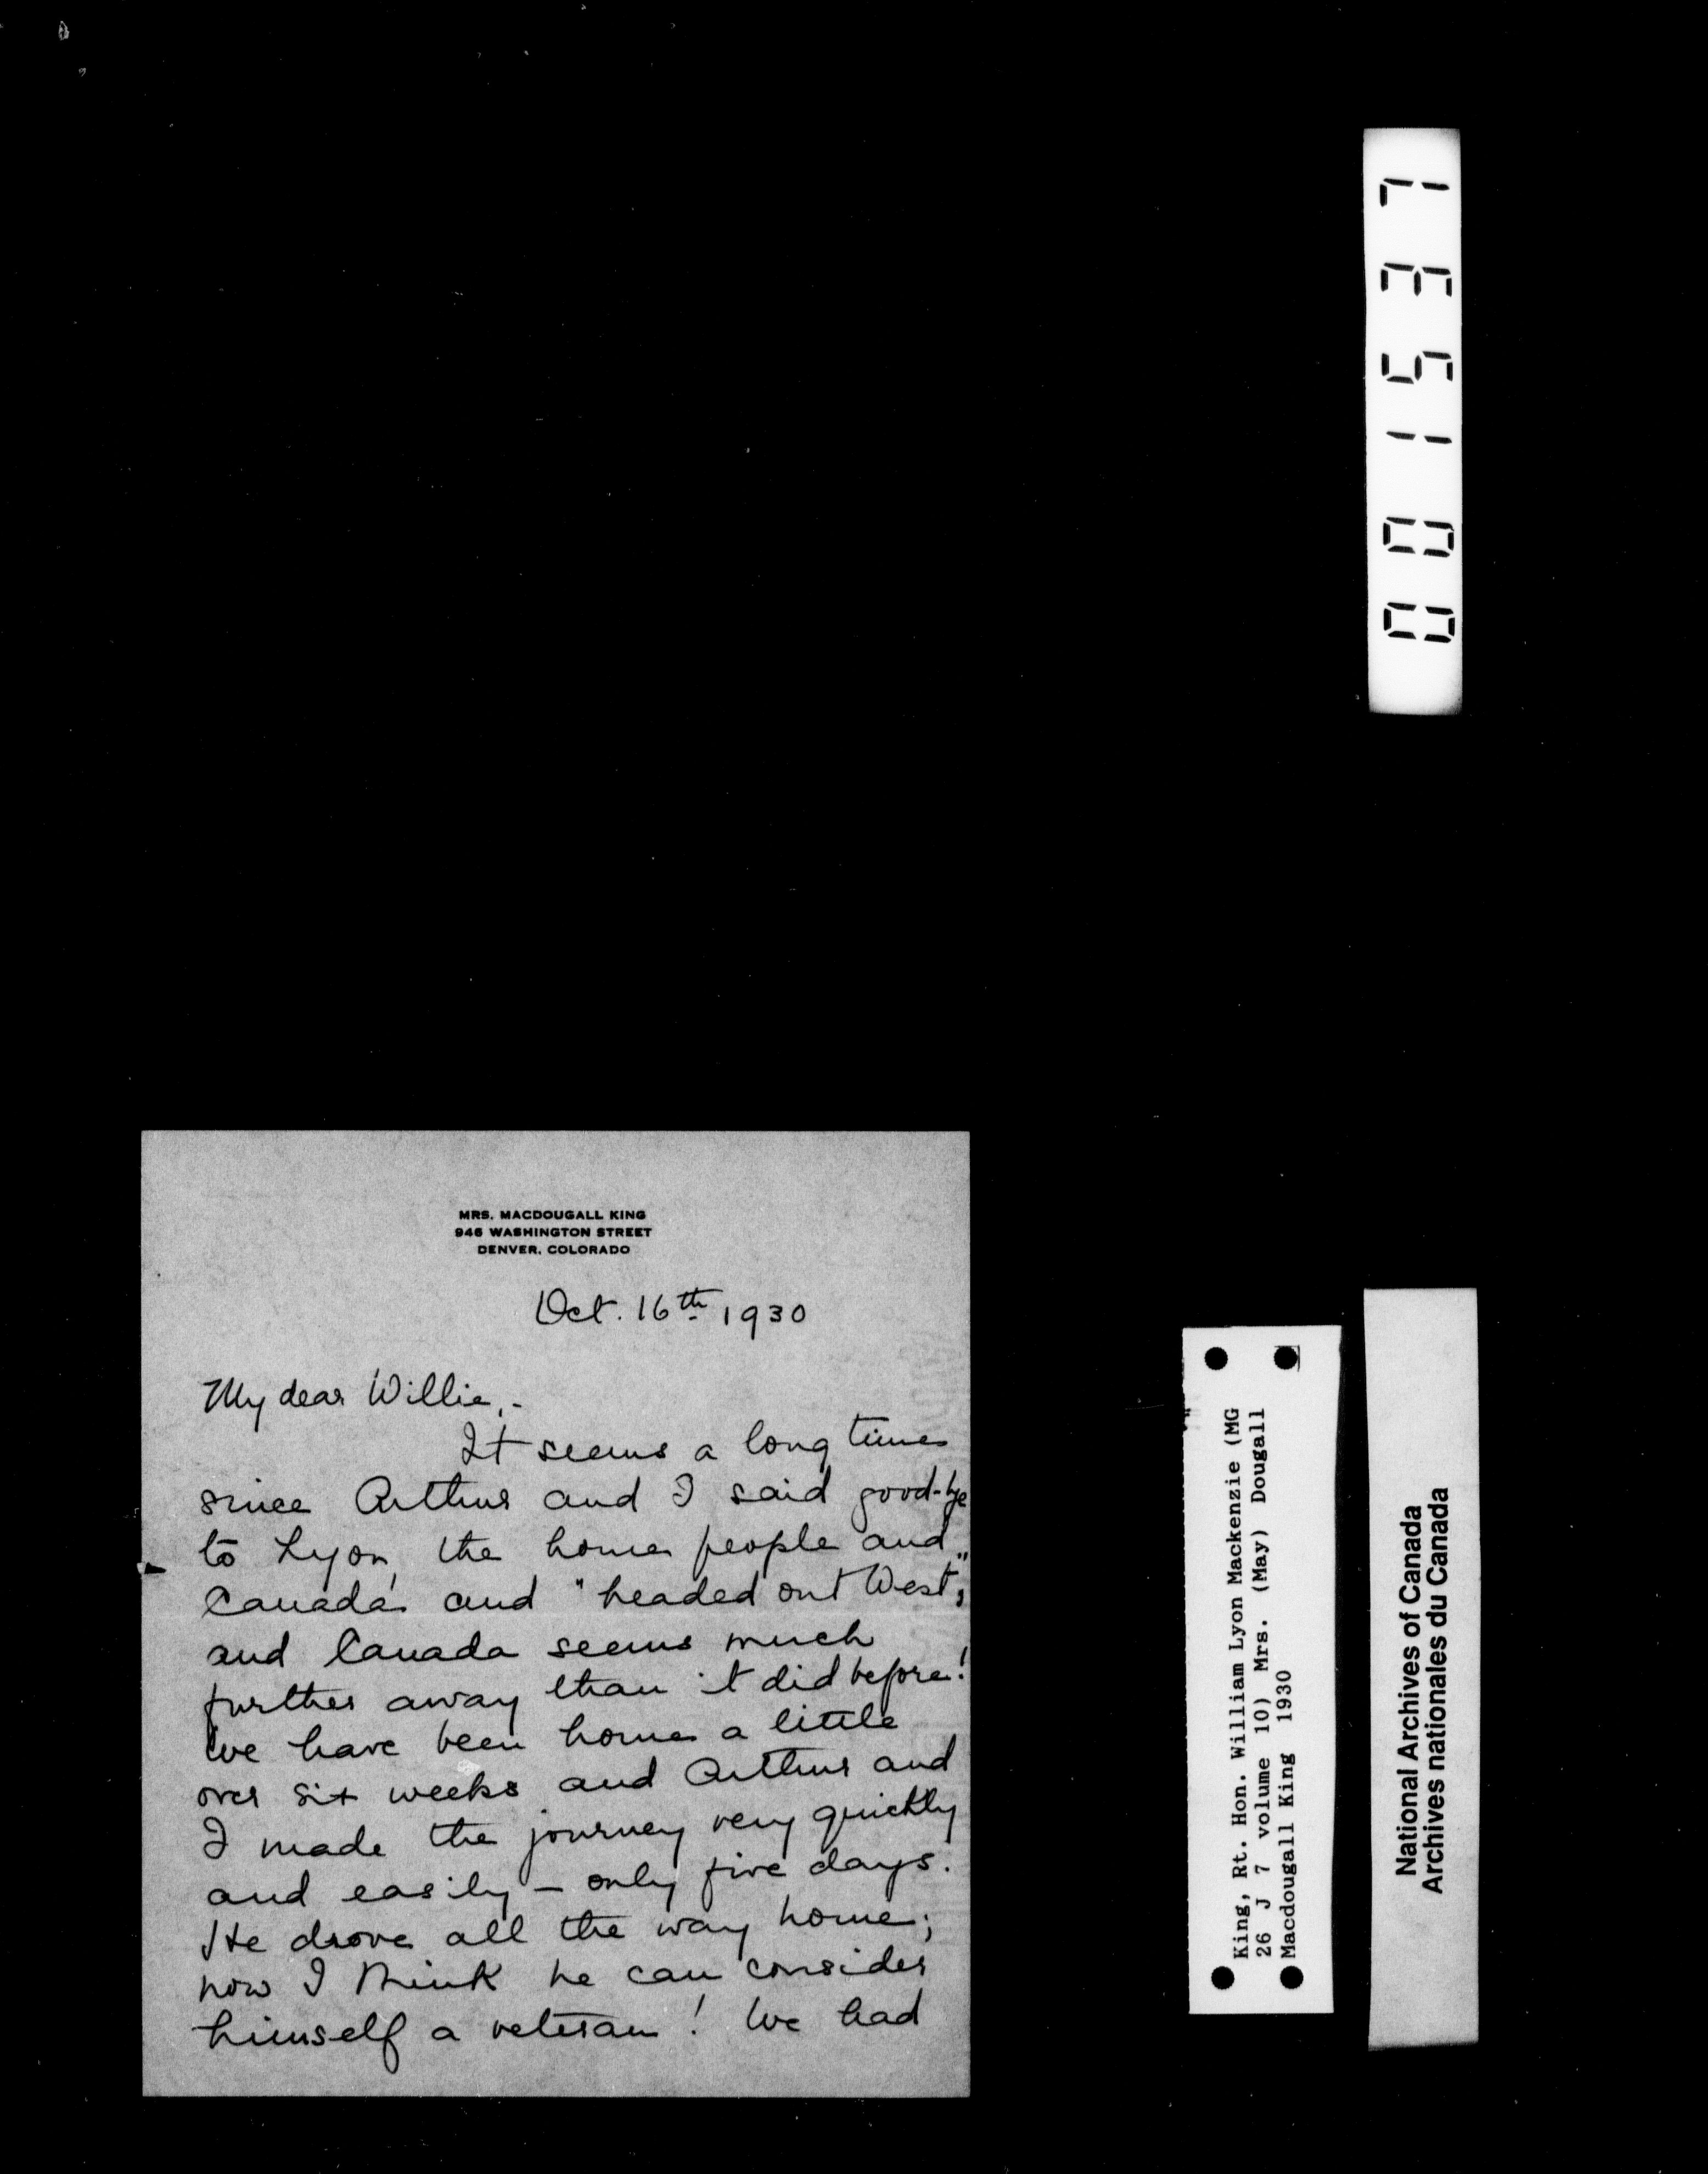 001537
MRS. MACDOUGALL KING
946 WASHINGTON STREET
DENVER, COLORADO
Oct. 16th 1930
My dear Willie,-
It seems a long time
since Arthur and I said good-bye
to Lyon, the home people and
Canada and "headed out West",
and Canada seems much
further away than it did before!
We have been home a little
over six weeks and Arthur and
I made the journey very quickly
and easily – only five days.
He drove all the way home;
now I think he can consider
himself a veteran! We had
King, Rt. Hon. William Lyon Mackenzie (MG
26 J 7 volume 10) Mrs. (May) Dougall
Macdougall King 1930
National Archives of Canada
Archives nationales du Canada